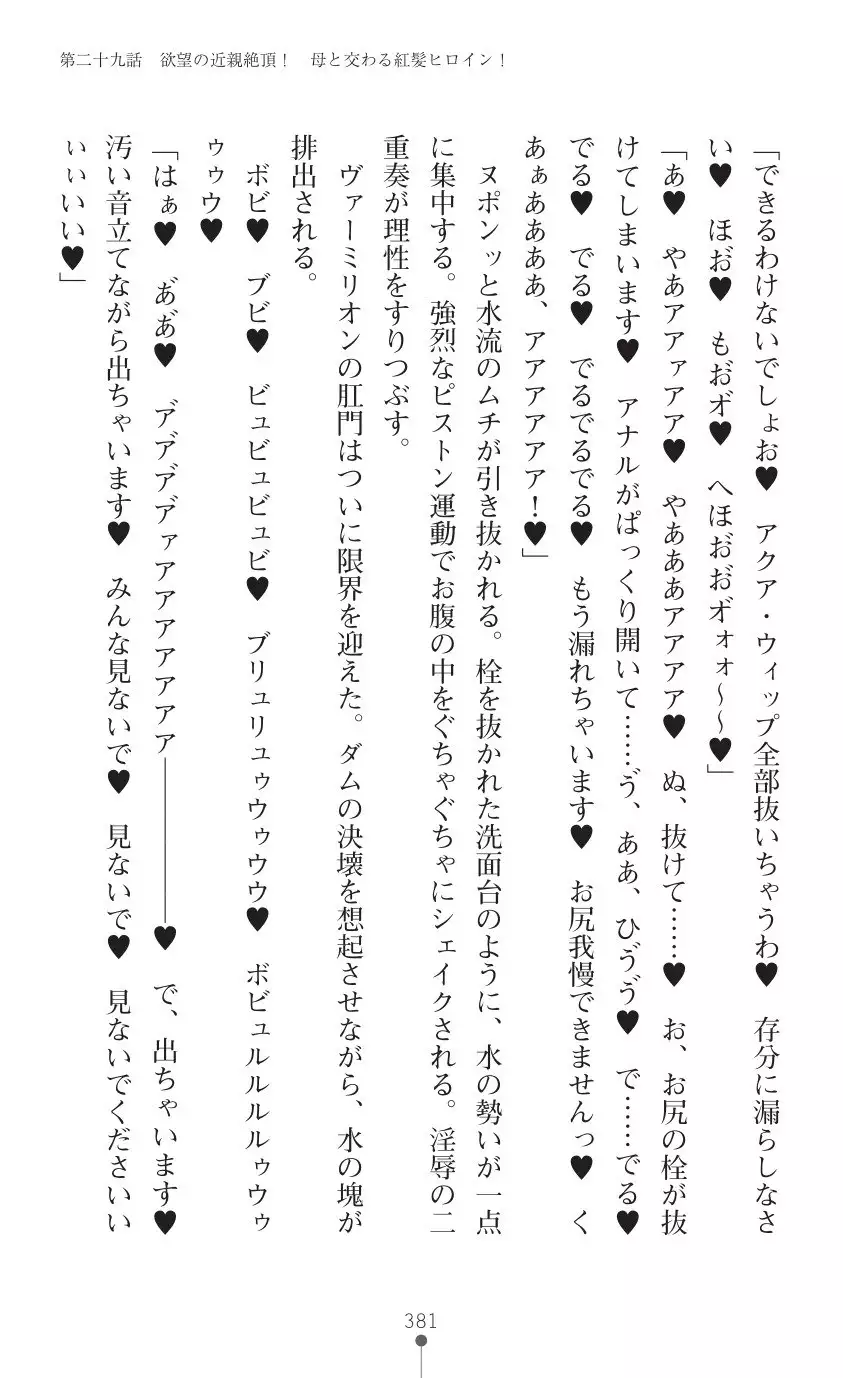 第二十九話　欲望の近親絶頂！　母と交わる紅髪ヒロイン！
「できるわけないでしょお♥　アクア・ウィップ全部抜いちゃうわ♥　存分に漏らしなさ
い♥　ほお゙♥　もお゙オ゙♥　へほお゙お゙オ゙ォォ～～♥」
「あ♥　やあアアァアア♥　やあああアアアア♥　ぬ、抜けて……♥　お、お尻の栓が抜
けてしまいます♥　アナルがぱっくり開いて……う゛、ああ、ひう゛う゛♥　で……でる♥
でる♥　でる♥　でるでるでる♥　もう漏れちゃいます♥　お尻我慢できませんっ♥　く
あぁああああ、アアアアアア！♥」
　ヌポンッと水流のムチが引き抜かれる。栓を抜かれた洗面台のように、水の勢いが一点
に集中する。強烈なピストン運動でお腹の中をぐちゃぐちゃにシェイクされる。淫辱の二
重奏が理性をすりつぶす。
　ヴァーミリオンの肛門はついに限界を迎えた。ダムの決壊を想起させながら、水の塊が
排出される。
　ボビ♥　ブビ♥　ビュビュビュビ♥　ブリュリュゥウゥウウ♥　ボビュルルルルゥウゥ
ゥゥウ♥
「はぁ♥　あ゙あ゙♥　ア゙ア゙ア゙ア゙ァアアアアアアァ――――――♥　で、出ちゃいます♥
汚い音立てながら出ちゃいます♥　みんな見ないで♥　見ないで♥　見ないでくださいい
ぃぃいい♥」
381